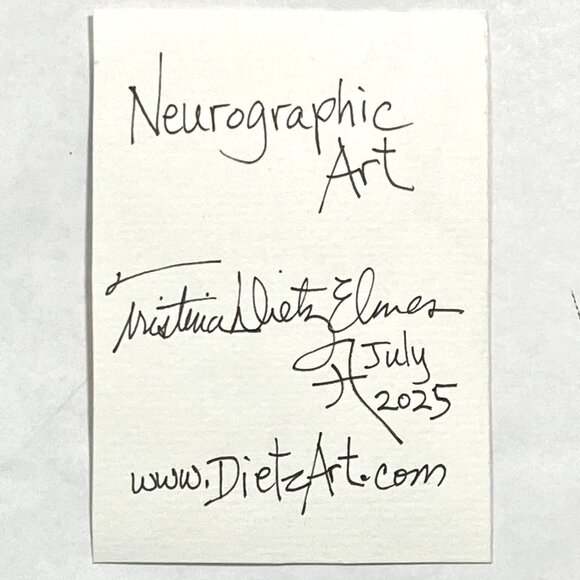 Neurographic
Art
Tristina Dietz Elmes
July
2025
www.DietzArt.com